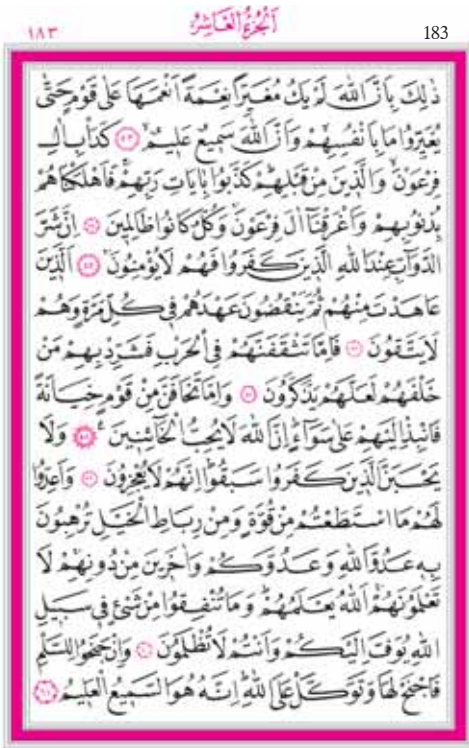 ١٨٣
اَلْجُزْءُ الْعَاشِرُ
183
ذٰلِكَ بِاَنَّ اللّٰهَ لَمْ يَكُ مُغَيِّرًا نِعْمَةً اَنْعَمَهَا عَلٰى قَوْمٍ حَتّٰى
يُغَيِّرُوا مَا بِاَنْفُسِهِمْ وَاَنَّ اللّٰهَ سَمِيعٌ عَلِيمٌ ﴿٥٣﴾ كَدَأْبِ اٰلِ
فِرْعَوْنَ وَالَّذِينَ مِنْ قَبْلِهِمْ كَذَّبُوا بِاٰيَاتِ رَبِّهِمْ فَاَهْلَكْنَاهُمْ
بِذُنُوبِهِمْ وَاَغْرَقْنَا اٰلَ فِرْعَوْنَ وَكُلٌّ كَانُوا ظَالِمِينَ ﴿٥٤﴾ اِنَّ شَرَّ
الدَّوَابِّ عِنْدَ اللّٰهِ الَّذِينَ كَفَرُوا فَهُمْ لَا يُؤْمِنُونَ ﴿٥٥﴾ اَلَّذِينَ
عَاهَدْتَ مِنْهُمْ ثُمَّ يَنْقُضُونَ عَهْدَهُمْ فِي كُلِّ مَرَّةٍ وَهُمْ
لَا يَتَّقُونَ ﴿٥٦﴾ فَاِمَّا تَثْقَفَنَّهُمْ فِي الْحَرْبِ فَشَرِّدْ بِهِمْ مَنْ
خَلْفَهُمْ لَعَلَّهُمْ يَذَّكَّرُونَ ﴿٥٧﴾ وَاِمَّا تَخَافَنَّ مِنْ قَوْمٍ خِيَانَةً
فَانْبِذْ اِلَيْهِمْ عَلٰى سَوَاءٍ اِنَّ اللّٰهَ لَا يُحِبُّ الْخَائِنِينَ ﴿٥٨﴾ وَلَا
يَحْسَبَنَّ الَّذِينَ كَفَرُوا سَبَقُوا اِنَّهُمْ لَا يُعْجِزُونَ ﴿٥٩﴾ وَاَعِدُّوا
لَهُمْ مَا اسْتَطَعْتُمْ مِنْ قُوَّةٍ وَمِنْ رِبَاطِ الْخَيْلِ تُرْهِبُونَ
بِهِ عَدُوَّ اللّٰهِ وَعَدُوَّكُمْ وَاٰخَرِينَ مِنْ دُونِهِمْ لَا
تَعْلَمُونَهُمْ اَللّٰهُ يَعْلَمُهُمْ وَمَا تُنْفِقُوا مِنْ شَيْءٍ فِي سَبِيلِ
اللّٰهِ يُوَفَّ اِلَيْكُمْ وَاَنْتُمْ لَا تُظْلَمُونَ ﴿٦٠﴾ وَاِنْ جَنَحُوا لِلسَّلْمِ
فَاجْنَحْ لَهَا وَتَوَكَّلْ عَلَى اللّٰهِ اِنَّهُ هُوَ السَّمِيعُ الْعَلِيمُ ﴿٦١﴾